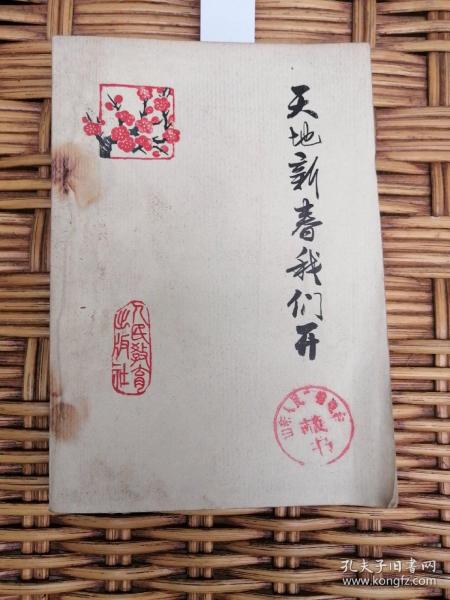 天地新春我们开
人民教育
出版社
山东人民广播电台
藏书
孔夫子旧书网
www.kongfz.com